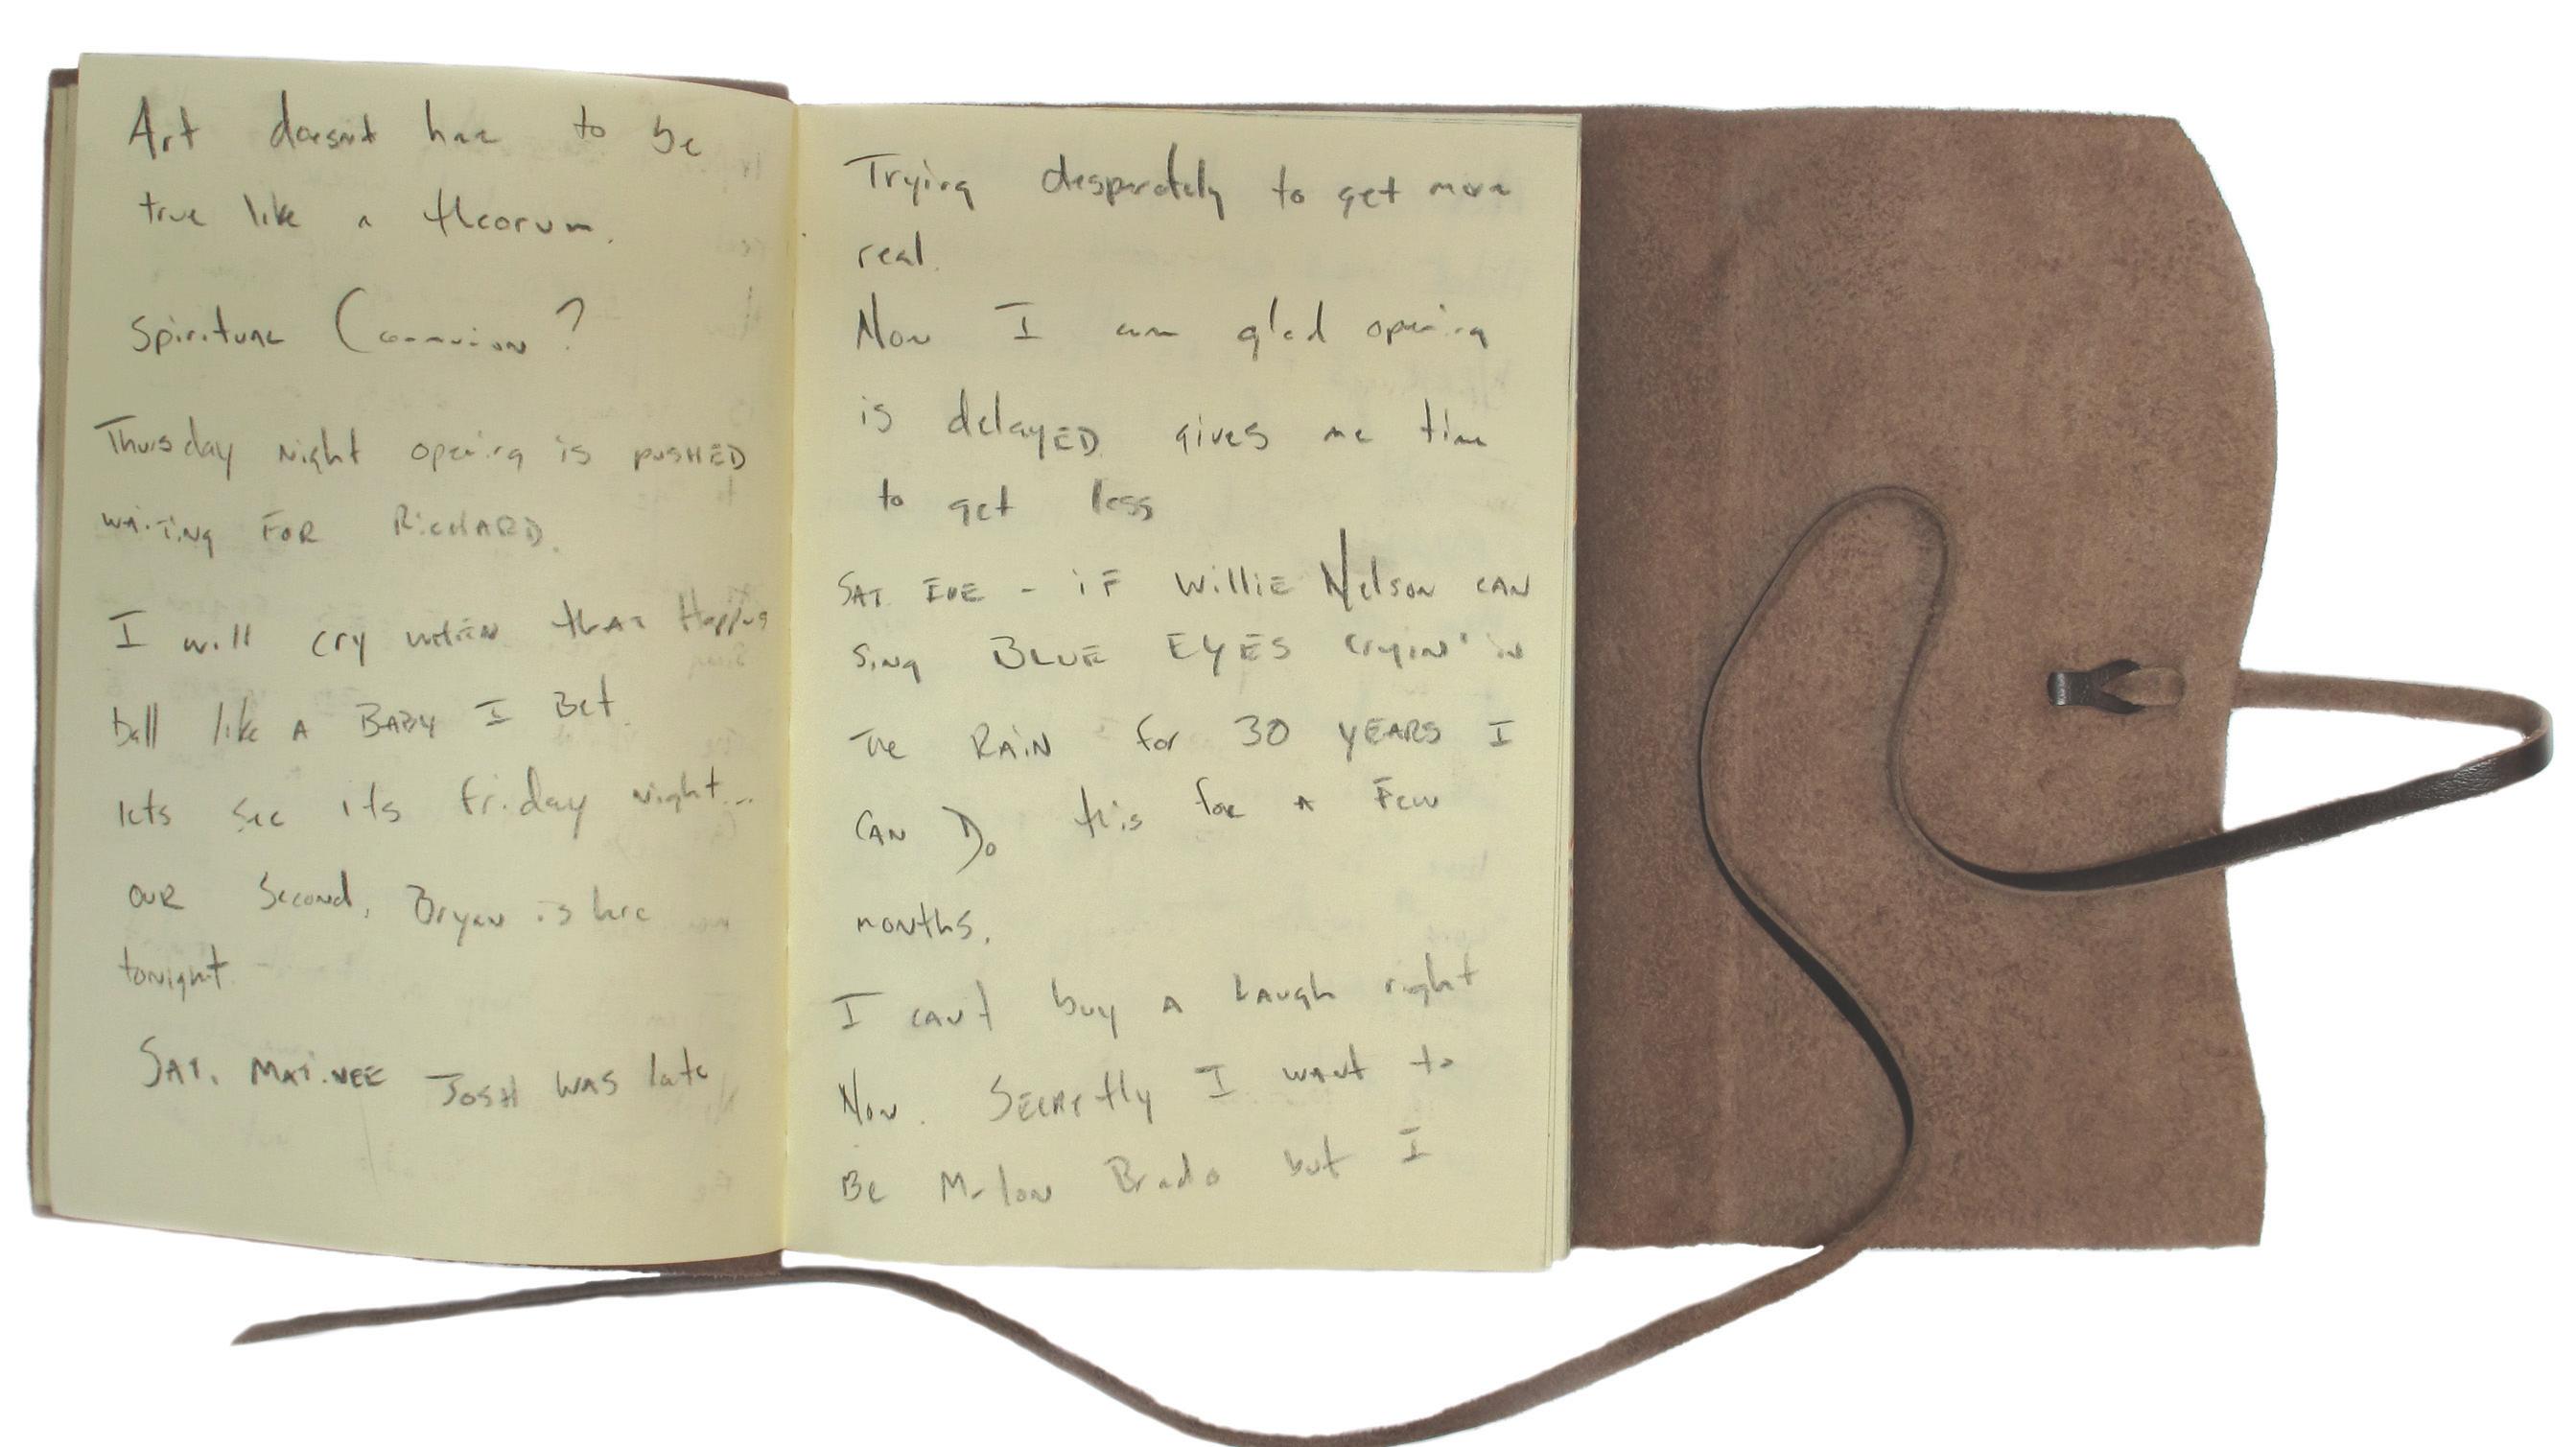 Art doesnt have to be
true like a theorum.
Spiritual Communion?
Thursday Night opening is pusHED
waiting FOR RicHARD.
I will cry when that Happens
ball like A BABY I Bet.
lets see its friday night...
our second, Bryan is here
tonight
SAT. MATiNEE Josh was late
Trying desparately to get more
real.
Now I am glad opening
is delayED gives me time
to get less
SAT EVE - iF WilliE Nelson CAN
Sing BLUE EYES cryin' in
The RAiN for 30 YEARS I
CAN Do this for A Few
months.
I can't buy A Laugh right
Now. SECRetly I want to
Be Marlon Brando but I